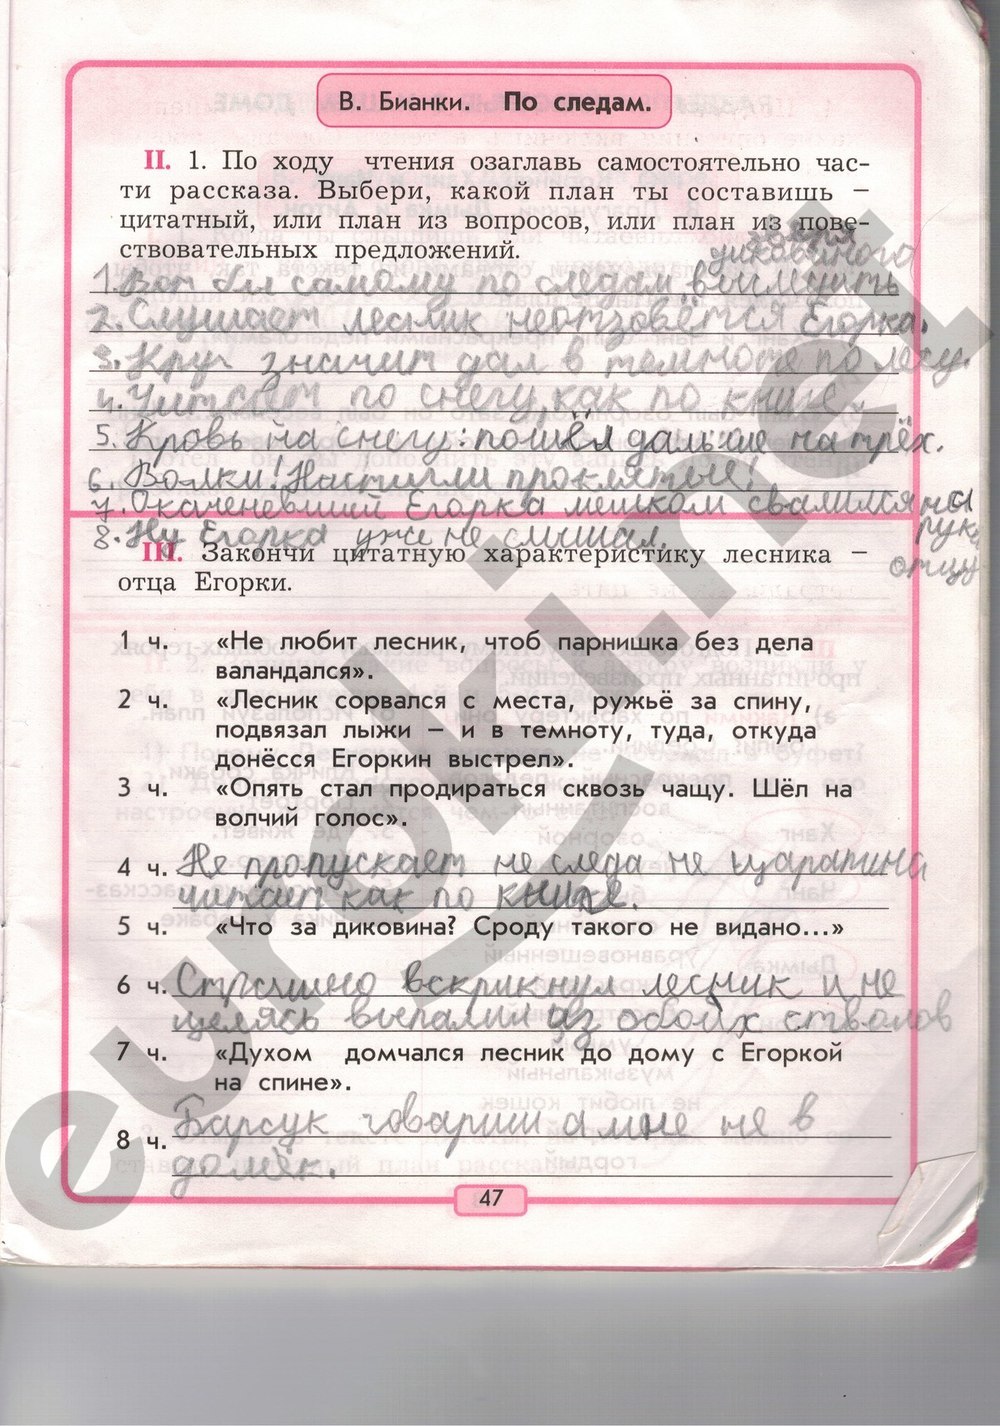 В. Бианки. По следам.
II. 1. По ходу чтения озаглавь самостоятельно час-
ти рассказа. Выбери, какой план ты составишь –
цитатный, или план из вопросов, или план из пове-
ствовательных предложений.
зверя
диковиного
1. Вот бы самому по следам выследить
2. Слушает лесник неотзовётся Егорка.
3. Круг значит дал в темноте по лесу.
4. Читает по снегу, как по книге.
5. Кровь на снегу: пошёл дальше на трёх.
6. Волки! Настигли проклятые!
7. Окаченевший Егорка мешком свалился на
руки
отцу
8. Ну Егорка уже не слышал.
III. Закончи цитатную характеристику лесника –
отца Егорки.
1 ч. «Не любит лесник, чтоб парнишка без дела
валандался».
2 ч. «Лесник сорвался с места, ружьё за спину,
подвязал лыжи – и в темноту, туда, откуда
донёсся Егоркин выстрел».
3 ч. «Опять стал продираться сквозь чащу. Шёл на
волчий голос».
4 ч. Не пропускает не следа не царапина
читает как по книге.
5 ч. «Что за диковина? Сроду такого не видано...»
6 ч. Страшно вскрикнул лесник и не
целясь выпалил из обоих стволов
7 ч. «Духом домчался лесник до дому с Егоркой
на спине».
8 ч. Барсук товарищ а мне не в
домёк.
47
euroki.net